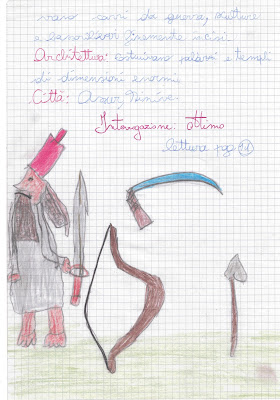 vano carri da guerra, sculture
e bassorilievi finemente incisi.
Architettura: costruivano palazzi e templi
di dimensioni enormi.
Città: Assur, Ninive.
Interrogazione: ottimo
lettura pag